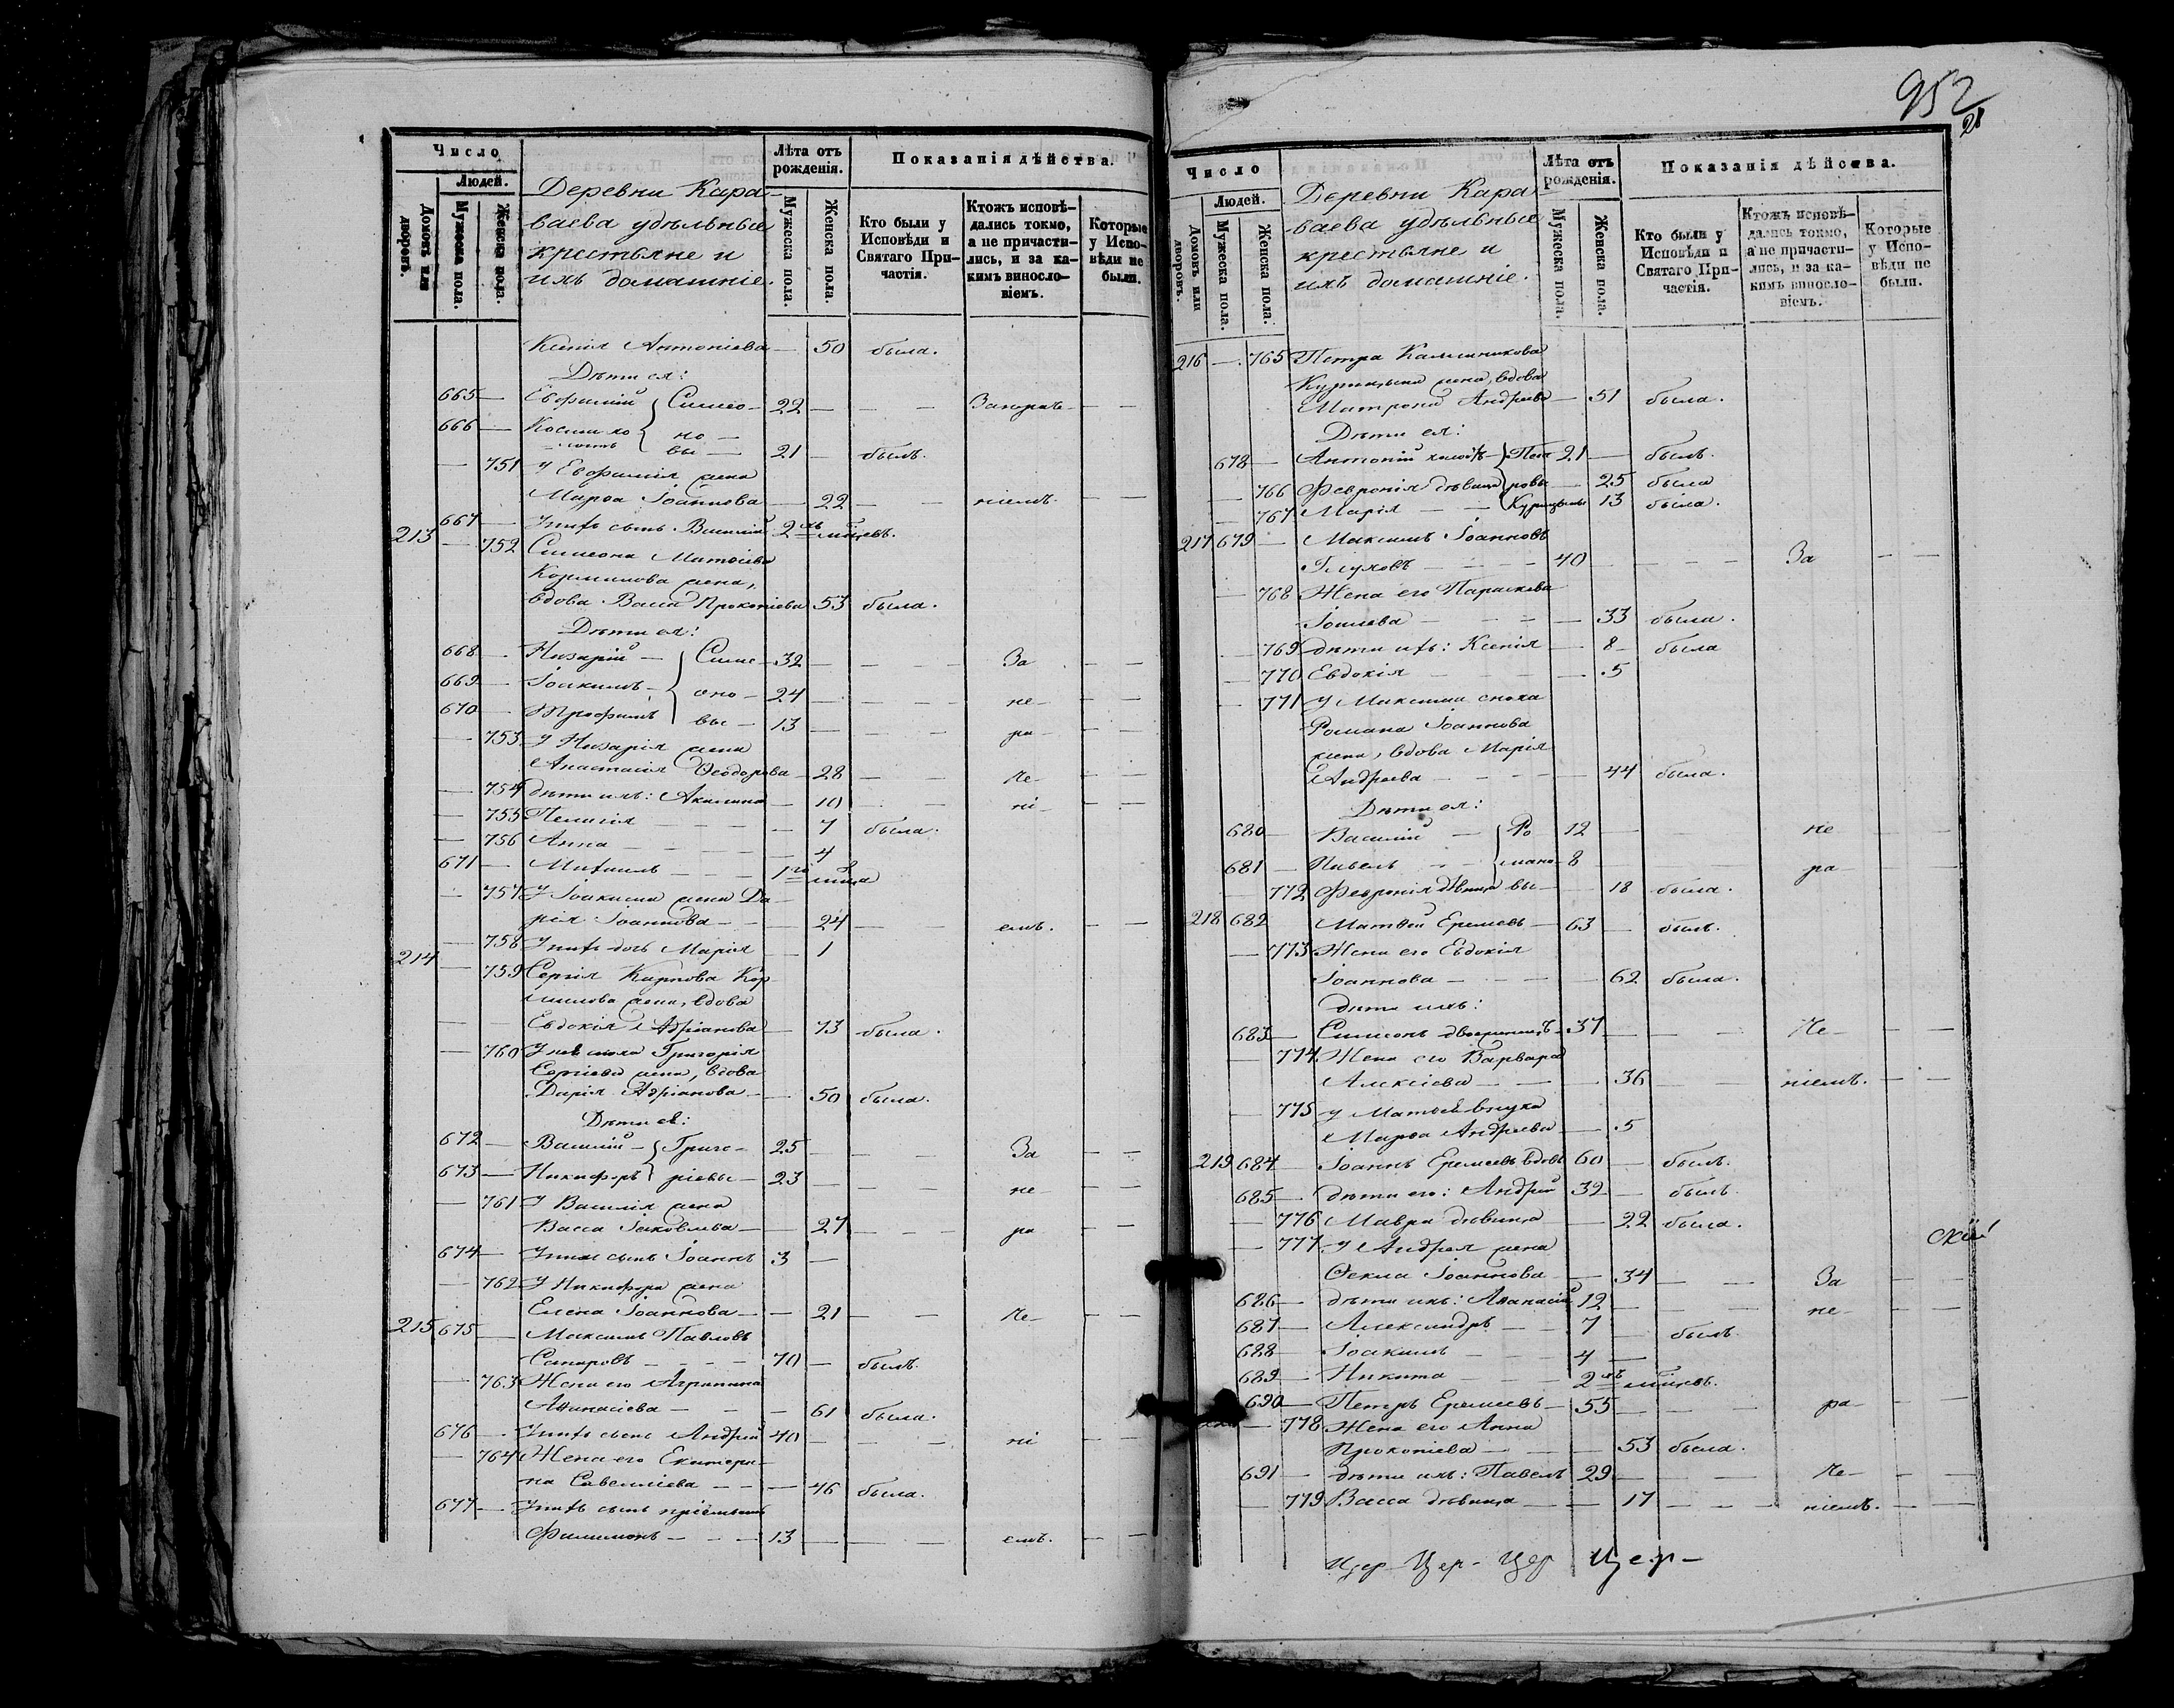 Число
Людей.
Домовъ или дворовъ.
Мужеска пола.
Женска пола.
Деревни Кара-
ваева удѣльные
крестьяне и
ихъ домашніе.
Лѣта отъ рожденія.
Мужеска пола.
Женска пола.
Показанія дѣйства.
Кто были у Исповѣди и Святаго Причастія.
Ктожъ исповѣдались токмо, а не причастились, и за какимъ винословіемъ.
Которые у Исповѣди не были.
Ксенія Антоніева — 50 была.
Дѣти ея:
665 — Евфимій Симео- 22 — — —
666 — Косма но- вы 21 — былъ.
— 751 У Евфимія жена
Марѳа Іоаннова — 22 — — ніемъ. — —
667 — У нихъ сынъ Василій 2 хъ мѣсяцевъ.
213 — 752 Симеона Матѳіева
жена,
вдова Васса Прокопіева 53 была.
Дѣти ея:
668 — Назарій — Симе- 32 — — — За — —
669 — Іоакимъ — оно- 24 — — — не- — —
670 — Трофимъ вы — 13 — — — ра- — —
— 753 У Назарія жена
Анастасія Ѳеодорова — 28 — — че- — —
— 754 дѣти ихъ: Акилина — 10 — — ні- — —
— 755 Пелагія — — — 7 была.
— 756 Анна — — — 4
671 — Михаилъ — — — 1 го мѣсяца
— 757 У Іоакима жена Да-
рія Іоаннова — — 24 — — емъ. — —
— 758 У нихъ дочь Марія — 1
214 — 759 Сергія Карпова Кор-
милова жена, вдова
Евдокія Адріанова — 73 была.
— 760 У нея сноха Григорія
Сергіева жена, вдова
Дарія Адріанова — 50 была.
Дѣти ея:
672 — Василій — Григо- 25 — — — За — —
673 — Никифоръ ріевы — 23 — — — не- — —
— 761 У Василія жена
Васса Іаковлева — — 27 — — ра — —
674 — У нихъ сынъ Іоаннъ 3 —
— 762 У Никифора жена
Елена Іоаннова — — 21 — — че- — —
215 675 — Максимъ Павловъ
— — — 70 — былъ.
— 763 Жена его Агрипина
Аѳанасіева — — — 61 была.
676 — У нихъ сынъ Андрей 40 — — — ні — —
— 764 Жена его Екатери-
на Савелліева — — — 46 была.
677 — У нихъ сынъ пріемышъ
Филимонъ — — — 13 — — — емъ. — —
952
21
Число
Людей.
Домовъ или дворовъ.
Мужеска пола.
Женска пола.
Деревни Кара-
ваева удѣльные
крестьяне и
ихъ домашніе.
Лѣта отъ рожденія.
Мужеска пола.
Женска пола.
Показанія дѣйства.
Кто были у Исповѣди и Святаго Причастія.
Ктожъ исповѣдались токмо, а не причастились, и за какимъ винословіемъ.
Которые у Исповѣди не были.
216 — 765 Петра Каллиникова
Курицына жена, вдова
Матрона Андреева — 51 была.
Дѣти ея:
678 — Антоній — Пет- 21 — былъ.
— 766 Февронія дѣвица ровы — 25 была
— 767 Марія — — Курицыны 13 была.
217 679 — Максимъ Іоанновъ
Глуховъ — — — 40 — — — За — —
— 768 Жена его Параскева
Іоилева — — — — 33 была.
— 769 дѣти ихъ: Ксенія — 8 — была
— 770 Евдокія — — — — 5
— 771 У Максима сноха
Романа Іоаннова
жена, вдова Марія
Андреева — — — — 44 была.
Дѣти ея:
680 — Василій — Ро- 12 — не — —
681 — Павелъ — — мано- 8 — ра- — —
— 772 Февронія дѣвица вы — — 18 была.
218 682 Матвей Еремеевъ — 63 — былъ.
— 773 Жена его Евдокія
Іоаннова — — — — 62 была.
дѣти ихъ:
683 — Симеонъ двоеженецъ — 37 — — — че- — —
— 774 Жена его Варвара
Алексіева — — — 36 — — ніемъ. — —
— 775 у Матвея внука
Марѳа Андреева — 5
219 684 — Іоаннъ Еремеевъ вдовъ 60 — былъ.
685 — дѣти его: Андрей 32 — былъ.
— 776 Мавра дѣвица — 22 была.
— 777 У Андрея жена
Ѳекла Іоаннова — — 34 — — За — —
686 — дѣти ихъ: Аѳанасій 12 — — — не- — —
687 — Александръ — — 7 — былъ.
688 — Іоакимъ — — — 4 —
689 — Никита — — — 2 хъ мѣсяцевъ.
690 — Петръ Еремеевъ — 55 — — — ра- — —
— 778 Жена его Анна
Прокопіева — — — 53 была.
691 — дѣти ихъ: Павелъ 29 — — — че- — —
— 779 Васса дѣвица — — 17 — — — ніемъ. — —
скій
Цер- Цер- Цер Цер-